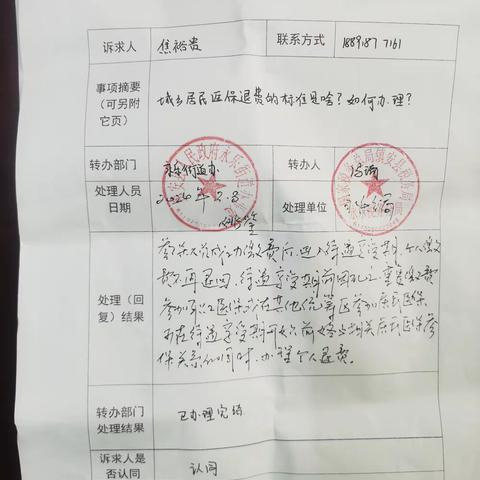 诉求人 焦裕贵 联系方式 1889187 7161
事项摘要
（可另附
它页）
城乡居民医保退费的标准是啥？如何办理？
转办部门 永乐街道办 转办人
处理人员
日期
2024年2.3
处理单位
处理（回
复）结果
参保人员成功缴费后，进入待遇享受期，个人缴
费不再退回，待遇享受期前因死亡、重复缴费
参加职工医保或在其他统筹区参加居民医保
可在待遇享受期开始前终止相关居民医保参
保关系的同时，办理个人退费。
转办部门
处理结果
已办理完结
诉求人是
否认同
认同